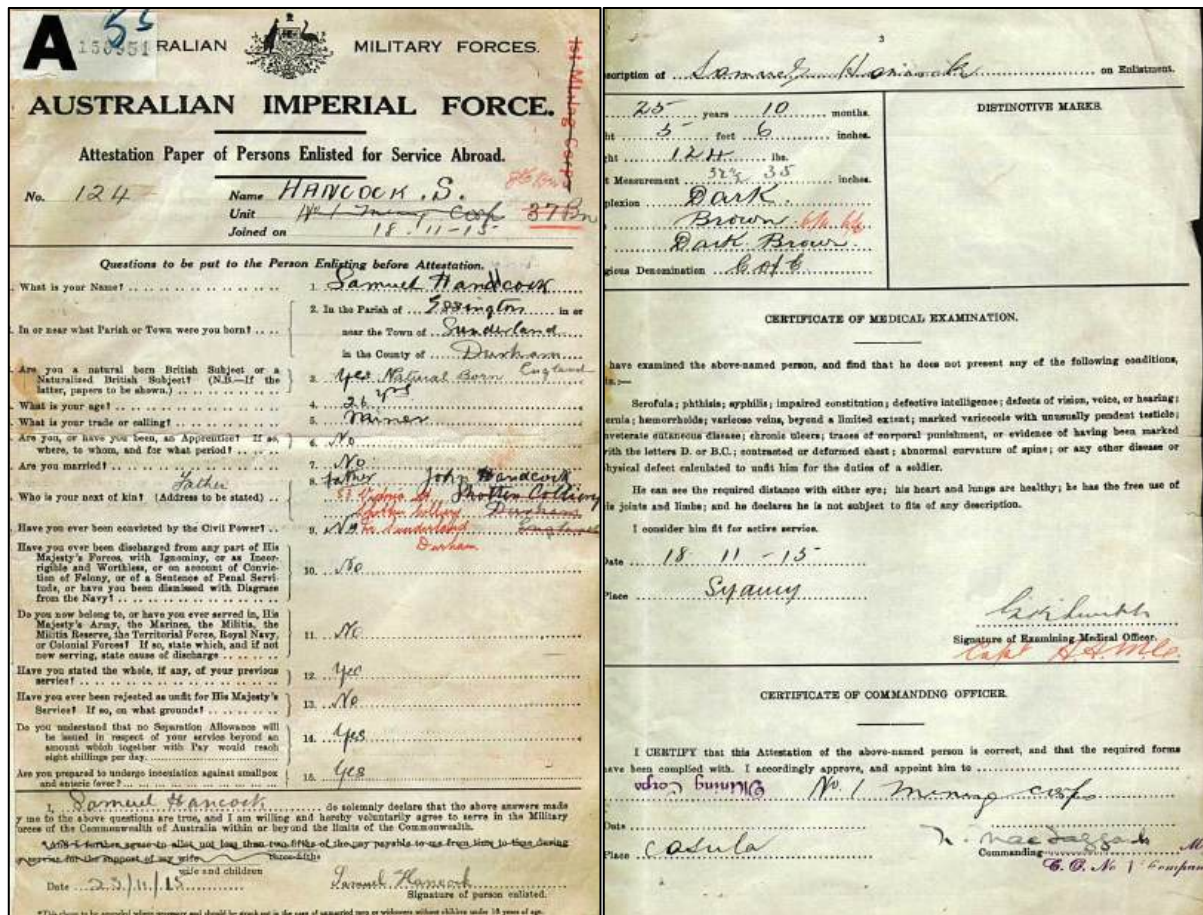 A
55
RALIAN MILITARY FORCES.
1st Mining Corps
AUSTRALIAN IMPERIAL FORCE.
Attestation Paper of Persons Enlisted for Service Abroad.
No. 124 Name HANCOCK. S.
Unit No 1 Mining Corp 37 Bn
Joined on 18.11-15
Questions to be put to the Person Enlisting before Attestation.
. What is your Name? 1. Samuel Handcock
2. In the Parish of Essington in or
. In or near what Parish or Town were you born? near the Town of Sunderland
in the County of Durham
England
. Are you a natural born British Subject or a
Naturalized British Subject? (N.B.—If the 3. Yes Natural Born
latter, papers to be shown.)
. What is your age? 4. 26 yrs
. What is your trade or calling? 5. Miner
. Are you, or have you been, an Apprentice? If so, 6. No
where, to whom, and for what period?
. Are you married? 7. No
Father 8. father John Handcock
. Who is your next of kin? (Address to be stated) Shotton Colliery
Durham
. Have you ever been convicted by the Civil Power? 9. No Sunderland England
Durham
Have you ever been discharged from any part of His
Majesty's Forces, with Ignominy, or as Incor-
rigible and Worthless, or on account of Convic-
tion of Felony, or of a Sentence of Penal Servi- 10. No
tude, or have you been dismissed with Disgrace
from the Navy?
Do you now belong to, or have you ever served in, His
Majesty's Army, the Marines, the Militia, the
Militia Reserve, the Territorial Force, Royal Navy, 11. No
or Colonial Forces? If so, state which, and if not
now serving, state cause of discharge
Have you stated the whole, if any, of your previous 12. Yes
service?
Have you ever been rejected as unfit for His Majesty's 13. No
Service? If so, on what grounds?
Do you understand that no Separation Allowance will
be issued in respect of your service beyond an 14. Yes
amount which together with Pay would reach
eight shillings per day.
Are you prepared to undergo inoculation against smallpox 15. Yes
and enteric fever?
I, Samuel Hancock do solemnly declare that the above answers made
y me to the above questions are true, and I am willing and hereby voluntarily agree to serve in the Military
orces of the Commonwealth of Australia within or beyond the limits of the Commonwealth.
*And I further agree to allot not less than two-fifths of the pay payable to me from time to time during
service for the support of my wife three-fifths
wife and children
Date 23/11/15 Samuel Hancock
Signature of person enlisted.
3
scription of Samuel Hancock on Enlistment.
25 years 10 months. DISTINCTIVE MARKS.
ht 5 feet 6 inches.
ght 124 lbs.
t Measurement 35 inches.
plexion Dark
Brown 6/6 6/6
Dark Brown
gious Denomination C of E
CERTIFICATE OF MEDICAL EXAMINATION.
have examined the above-named person, and find that he does not present any of the following conditions,
Scrofula; phthisis; syphilis; impaired constitution; defective intelligence; defects of vision, voice, or hearing;
ernia; hemorrhoids; varicose veins, beyond a limited extent; marked varicocele with unusually pendent testicle;
nveterate cutaneous disease; chronic ulcers; traces of corporal punishment, or evidence of having been marked
ith the letters D. or B.C.; contracted or deformed chest; abnormal curvature of spine; or any other disease or
hysical defect calculated to unfit him for the duties of a soldier.
He can see the required distance with either eye; his heart and lungs are healthy; he has the free use of
is joints and limbs; and he declares he is not subject to fits of any description.
I consider him fit for active service.
Date 18 11-15
Place Sydney
Signature of Examining Medical Officer.
Capt A.A.M.C.
CERTIFICATE OF COMMANDING OFFICER.
I CERTIFY that this Attestation of the above-named person is correct, and that the required forms
ave been complied with. I accordingly approve, and appoint him to
Mining Corps No. 1 Mining Corps
Date
Place Casula Commanding
C. O. No 1 Compan